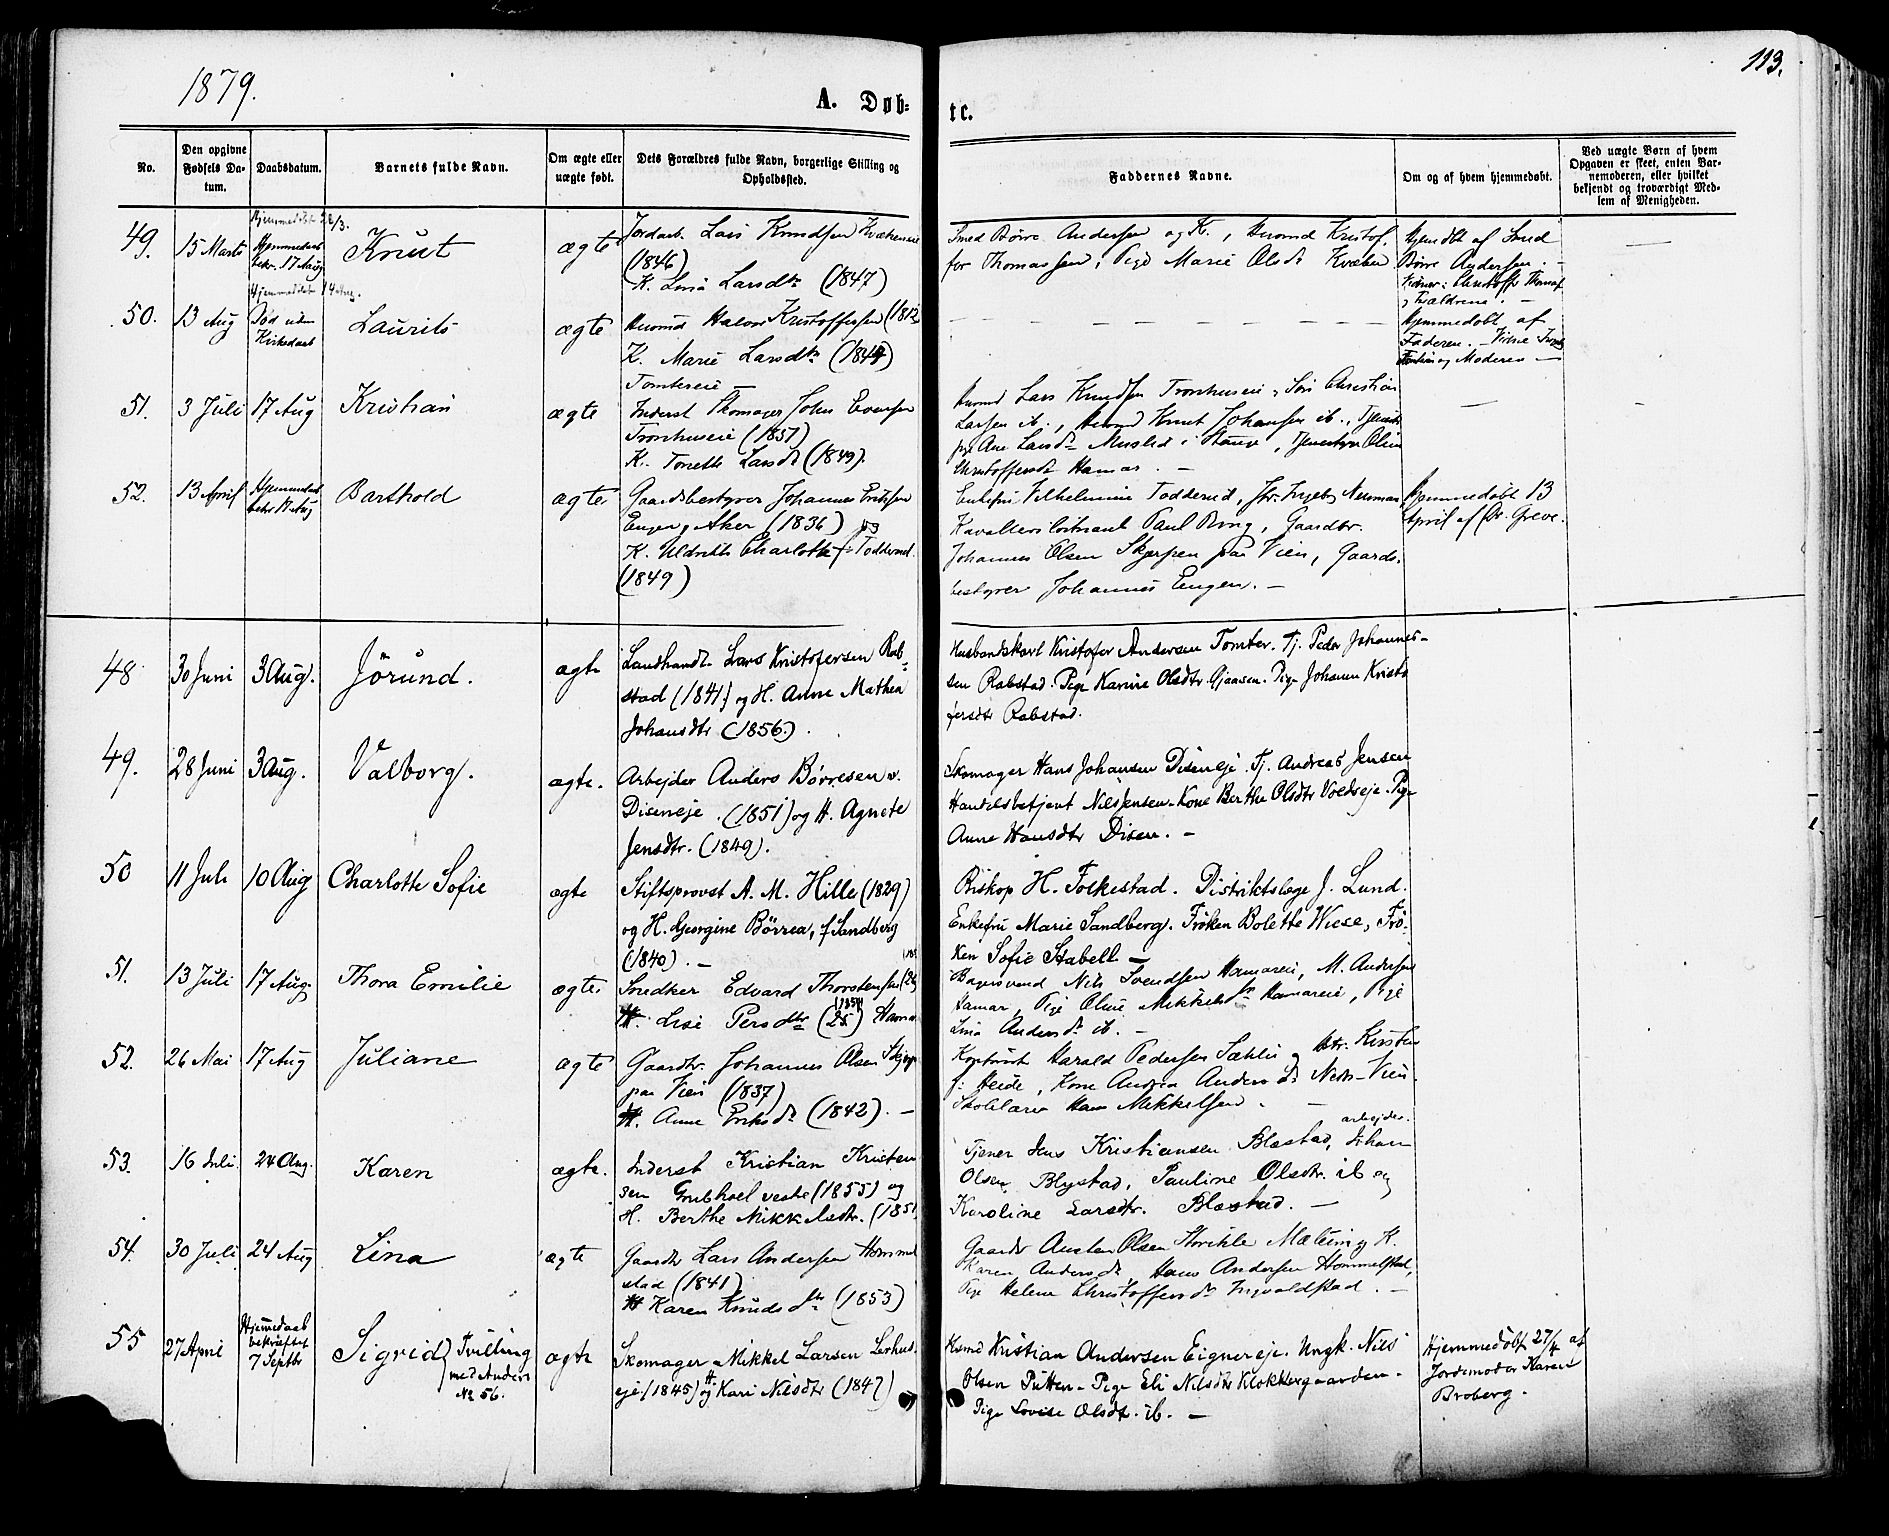 1879.
113.
A. Døb-
te.
No.
Den opgivne Fødsels Da-tum.
Daabsdatum.
Barnets fulde Navn.
Om ægte eller uægte født.
Dets Forældres fulde Navn, borgerlige Stilling og Opholdssted.
Faddernes Navne.
Om og af hvem hjemmedøbt.
Ved uægte Børn af hvem Opgaven er skeet, enten Bar-nemoderen, eller hvilket bekjendt og troværdigt Med-lem af Menigheden.
49. 15 Marts
Knut
ægte
Jordarb. Lars Knudsen
(1846)
K. Lina Larsdtr (1847)
Smed Børre Andersen og K., Husmd Kristof-
fer Thomassen, Pige Marie Olsdtr Kvæben
Hjemdbt af Smed
Børre Andersen.
50. 13 Aug
Død uden
Kirkedaab
Laurits
ægte
Husmd Halvor Kristoffersen (1812
K. Marie Larsdtr
Tomtereie
Hjemmedøbt af
Faderen.
og Moderen
51. 3 Juli 17 Aug Kristian
ægte
Inderst Skomager John Evensen
Tronhuseie (1851)
K. Tonette Larsdt (1849).
Husmd Lars Knudsen Tronhuseie, Søn Christian
Larsen ib., Husmd Knut Johansen ib.,
pige Ane Larsdtr
Christoffersdt Hamar.
52. 13 April
Barthold
ægte
Gaardsbestyrer Johannes Eriksen
Engen, Aker (1836) og
K. Uldrikke Charlotte f. Todderud.
(1849)
Enkefru Vilhelmine Todderud, Fr. Ingeb. Neuman,
Kavalleriløitnant Paul Ring, Gaardbr.
Johannes Olsen Skjerpen paa Vien, Gaards-
bestyrer Johannes Engen. —
Hjemmedøbt 13
April af Dr. Greve.
48 30 Juni 3 Aug. Jörund.
ægte
Landhandl. Lars Kristofersen Rab-
stad (1841) og H. Anne Mathea
Johansdtr (1856).
Husbondskarl Kristofer Andersen Tomter. Tj. Peder Johannes-
sen Rabstad. Pige Karine Olsdtr Gjaasen. Pige Johanne Kristo
fersdtr Rabstad.
49. 28 Juni 3 Aug. Valborg.
ægte.
Arbejder Anders Børresen v.
Diseneje. (1851) og H. Agnete
Jensdtr. (1849).
Skomager Hans Johansen Diseneje. Tj. Andreas Jensen
Handelsbetjent Nils Jensen. Kone Berthe Olsdtr Voldseje. Pige
Anne Hansdtr Disen. —
50 11 Juli 10 Aug Charlotte Sofie
ægte
Stiftsprovst A. M. Hille (1829)
og H. Georgine Börrea, f. Sandberg
(1840). —
Biskop H. Folkestad. Distriktslæge J. Lund.
Enkefru Marie Sandberg. Frøken Bolette Wiese, Frø-
ken Sofie Stabell —
51. 13 Juli 17 Aug. Thora Emilie
ægte
Snedker Edvard Thorstensen
H. Lise Persdtr (25)
Bagersvend Nils Svendsen Hamareie, M. Andersen
Hamar, Pige Oline Mikkelsdtr Hamareie, Pige
Lina Andersdt ib. —
52. 26 Mai 17 Aug Juliane
ægte
Gaardbr. Johannes Olsen
paa Vien (1837)
H. Anne Eriksdtr (1842). —
Harald Pedersen Sæhlie og Hstr. Kirsten
f. Heide, Kone Andrea Andersdtr Nedr-Vien.
Skolelærer Hans Mikkelsen. —
53. 16 Juli. 24 Aug. Karen
ægte.
Inderst Kristian Kristen
sen Grubhoel vestre (1855) og
H. Berthe Mikkelsdtr. (1851
arbejder.
Tjener Jens Kristiansen Blæstad, Johan
Olsen Blystad, Pauline Olsdtr. ib og
Karoline Larsdtr. Blæstad. —
54. 30 Juli 24 Aug Lina
ægte
Gaardb Lars Andersen Hommel
stad (1841)
H Karen Knudsdtr (1853)
Karen Andersdt Hans Andersen Hommelstad,
Pige Helene Christoffersdtr Ingvaldstad. —
55 27 April
Hjemmedaab
bekræftet
7 Septbr
Sigrid
Tvilling
med Anders
No 56.
ægte
Skomager Mikkel Larsen Lerhus-
eje (1845) og H Kari Nilsdtr (1847)
Husmd Kristian Andersen Eignereje. Ungk. Nils
Olsen Putten. Pige Eli Nilsdtr Klokkergaarden.
Pige Lovise Olsdt. ib. —
Hjemmedøbt 27/4 af
Jordemoder Karen
Broberg.